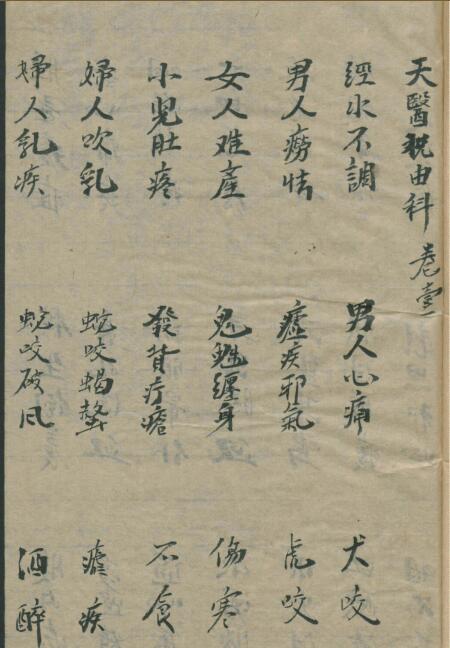 天醫祝由科 卷壹
經水不調 男人心痛 犬咬
男人癆怯 疾邪氣 虎咬
女人难產 鬼魅纏身 傷寒
小兒肚疼 發背疔瘡 不食
婦人吹乳 蛇咬蝎螫 瘧疾
婦人乳疾 蛇咬破风 酒醉